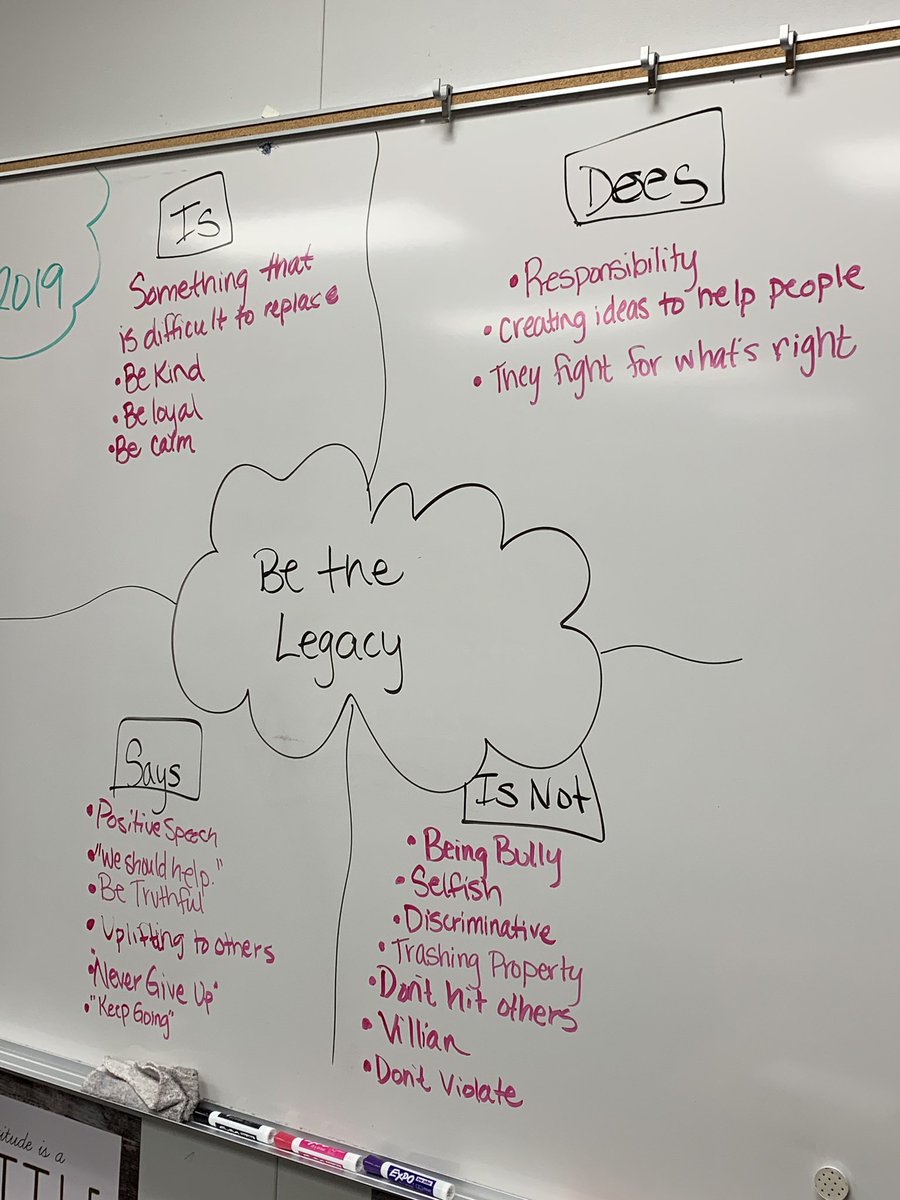 2019
Is
Something that
is difficult to replace
• Be Kind
• Be loyal
• Be calm
Does
• Responsibility
• Creating ideas to help people
• They fight for what's right
Be the
Legacy
Says
• Positive Speech
• "We should help."
• Be Truthful
• Uplifting to others
• "Never Give Up"
• "Keep Going"
Is Not
• Being Bully
• Selfish
• Discriminative
• Trashing Property
• Don't hit others
• Villian
• Don't Violate
EXPO
is a